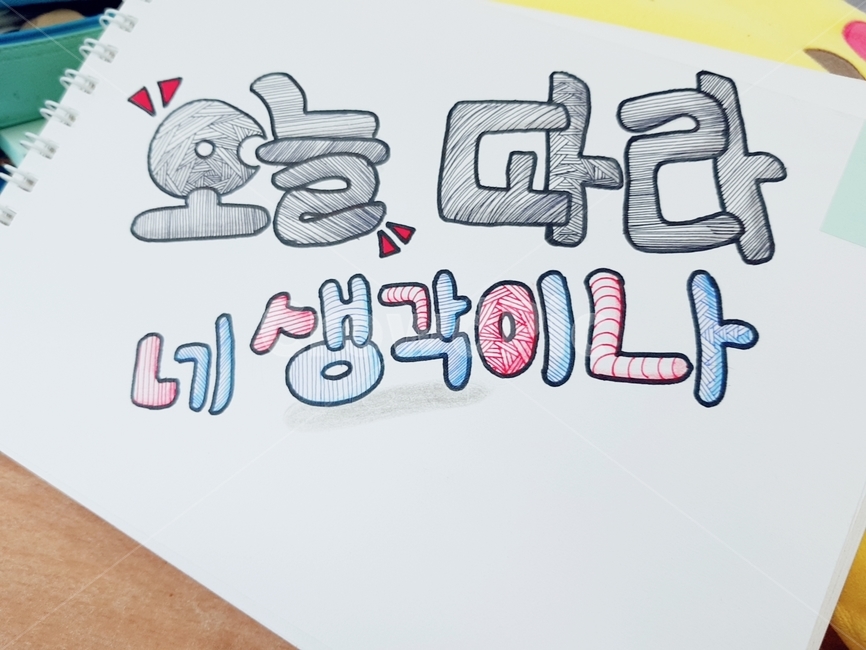 오늘 따라
네 생각이나